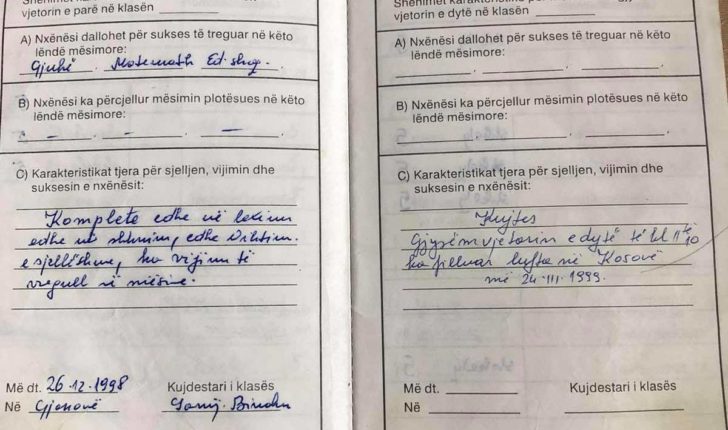 vjetorin e parë në klasën
A) Nxënësi dallohet për sukses të treguar në këto
lëndë mësimore:
Gjuhë . Matemath Ed. shoq.
B) Nxënësi ka përcjellur mësimin plotësues në këto
lëndë mësimore:
C) Karakteristikat tjera për sjelljen, vijimin dhe
suksesin e nxënësit:
Komplete edhe në lexim
edhe në shkrim, edhe
e sjellëshme, ka vijimin të
rregull në mësime.
Më dt. 26.12.1998
Në Gjonovë
Kujdestari i klasës
vjetorin e dytë në klasën
A) Nxënësi dallohet për sukses të treguar në këto
lëndë mësimore:
B) Nxënësi ka përcjellur mësimin plotësues në këto
lëndë mësimore:
C) Karakteristikat tjera për sjelljen, vijimin dhe
suksesin e nxënësit:
Gjysëmvjetorin e dytë të
ka filluar lufta në Kosovë
më 24.III.1999.
Më dt.
Në
Kujdestari i klasës